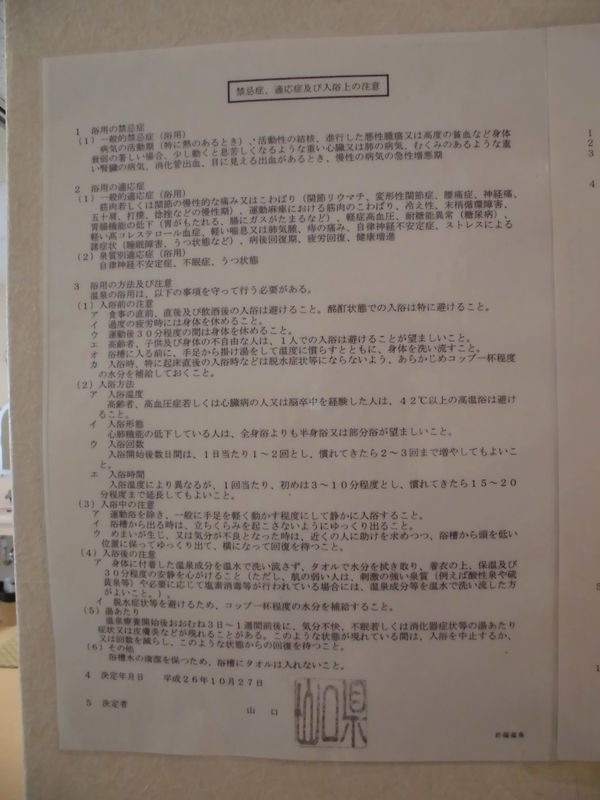 禁忌症、適応症及び入浴上の注意
1 浴用の禁忌症
(1) 一般的禁忌症(浴用)
病気の活動期(特に熱のあるとき)、活動性の結核、進行した悪性腫瘍又は高度の貧血など身体
衰弱の著しい場合、少し動くと息苦しくなるような重い心臓又は肺の病気、むくみのあるような重
い腎臓の病気、消化管出血、目に見える出血があるとき、慢性の病気の急性増悪期
2 浴用の適応症
(1) 一般的適応症(浴用)
筋肉若しくは関節の慢性的な痛み又はこわばり(関節リウマチ、変形性関節症、腰痛症、神経痛、
五十肩、打撲、捻挫などの慢性期)、運動麻痺における筋肉のこわばり、冷え性、末梢循環障害、
胃腸機能の低下(胃がもたれる、腸にガスがたまるなど)、軽症高血圧、耐糖能異常(糖尿病)、
軽い高コレステロール血症、軽い喘息又は肺気腫、痔の痛み、自律神経不安定症、ストレスによる
諸症状(睡眠障害、うつ状態など)、病後回復期、疲労回復、健康増進
(2) 泉質別適応症(浴用)
自律神経不安定症、不眠症、うつ状態
3 浴用の方法及び注意
温泉の浴用は、以下の事項を守って行う必要がある。
(1) 入浴前の注意
ア 食事の直前、直後及び飲酒後の入浴は避けること。酩酊状態での入浴は特に避けること。
イ 過度の疲労時には身体を休めること。
ウ 運動後30分程度の間は身体を休めること。
エ 高齢者、子供及び身体の不自由な人は、1人での入浴は避けることが望ましいこと。
オ 浴槽に入る前に、手足から掛け湯をして温度に慣らすとともに、身体を洗い流すこと。
カ 入浴時、特に起床直後の入浴時などは脱水症状等にならないよう、あらかじめコップ一杯程度
の水分を補給しておくこと。
(2) 入浴方法
ア 入浴温度
高齢者、高血圧症若しくは心臓病の人又は脳卒中を経験した人は、42℃以上の高温浴は避け
ること。
イ 入浴形態
心肺機能の低下している人は、全身浴よりも半身浴又は部分浴が望ましいこと。
ウ 入浴回数
入浴開始後数日間は、1日当たり1~2回とし、慣れてきたら2~3回まで増やしてもよいこ
と。
エ 入浴時間
入浴温度により異なるが、1回当たり、初めは3~10分程度とし、慣れてきたら15~20
分程度まで延長してもよいこと。
(3) 入浴中の注意
ア 運動浴を除き、一般に手足を軽く動かす程度にして静かに入浴すること。
イ 浴槽から出る時は、立ちくらみを起こさないようにゆっくり出ること。
ウ めまいが生じ、又は気分が不良となった時は、近くの人に助けを求めつつ、浴槽から頭を低い
位置に保ってゆっくり出て、横になって回復を待つこと。
(4) 入浴後の注意
ア 身体に付着した温泉成分を温水で洗い流さず、タオルで水分を拭き取り、着衣の上、保温及び
30分程度の安静を心がけること(ただし、肌の弱い人は、刺激の強い泉質(例えば酸性泉や硫
黄泉等)や必要に応じて塩素消毒等が行われている場合には、温泉成分等を温水で洗い流した方
がよいこと。)。
イ 脱水症状等を避けるため、コップ一杯程度の水分を補給すること。
(5) 湯あたり
温泉療養開始後おおむね3日~1週間前後に、気分不快、不眠若しくは消化器症状等の湯あたり
症状又は皮膚炎などが現れることがある。このような状態が現れている間は、入浴を中止するか、
又は回数を減らし、このような状態からの回復を待つこと。
(6) その他
浴槽水の清潔を保つため、浴槽にタオルは入れないこと。
4 決定年月日 平成26年10月27日
5 決定者 山口
山口県
1
2
3
4
5
1